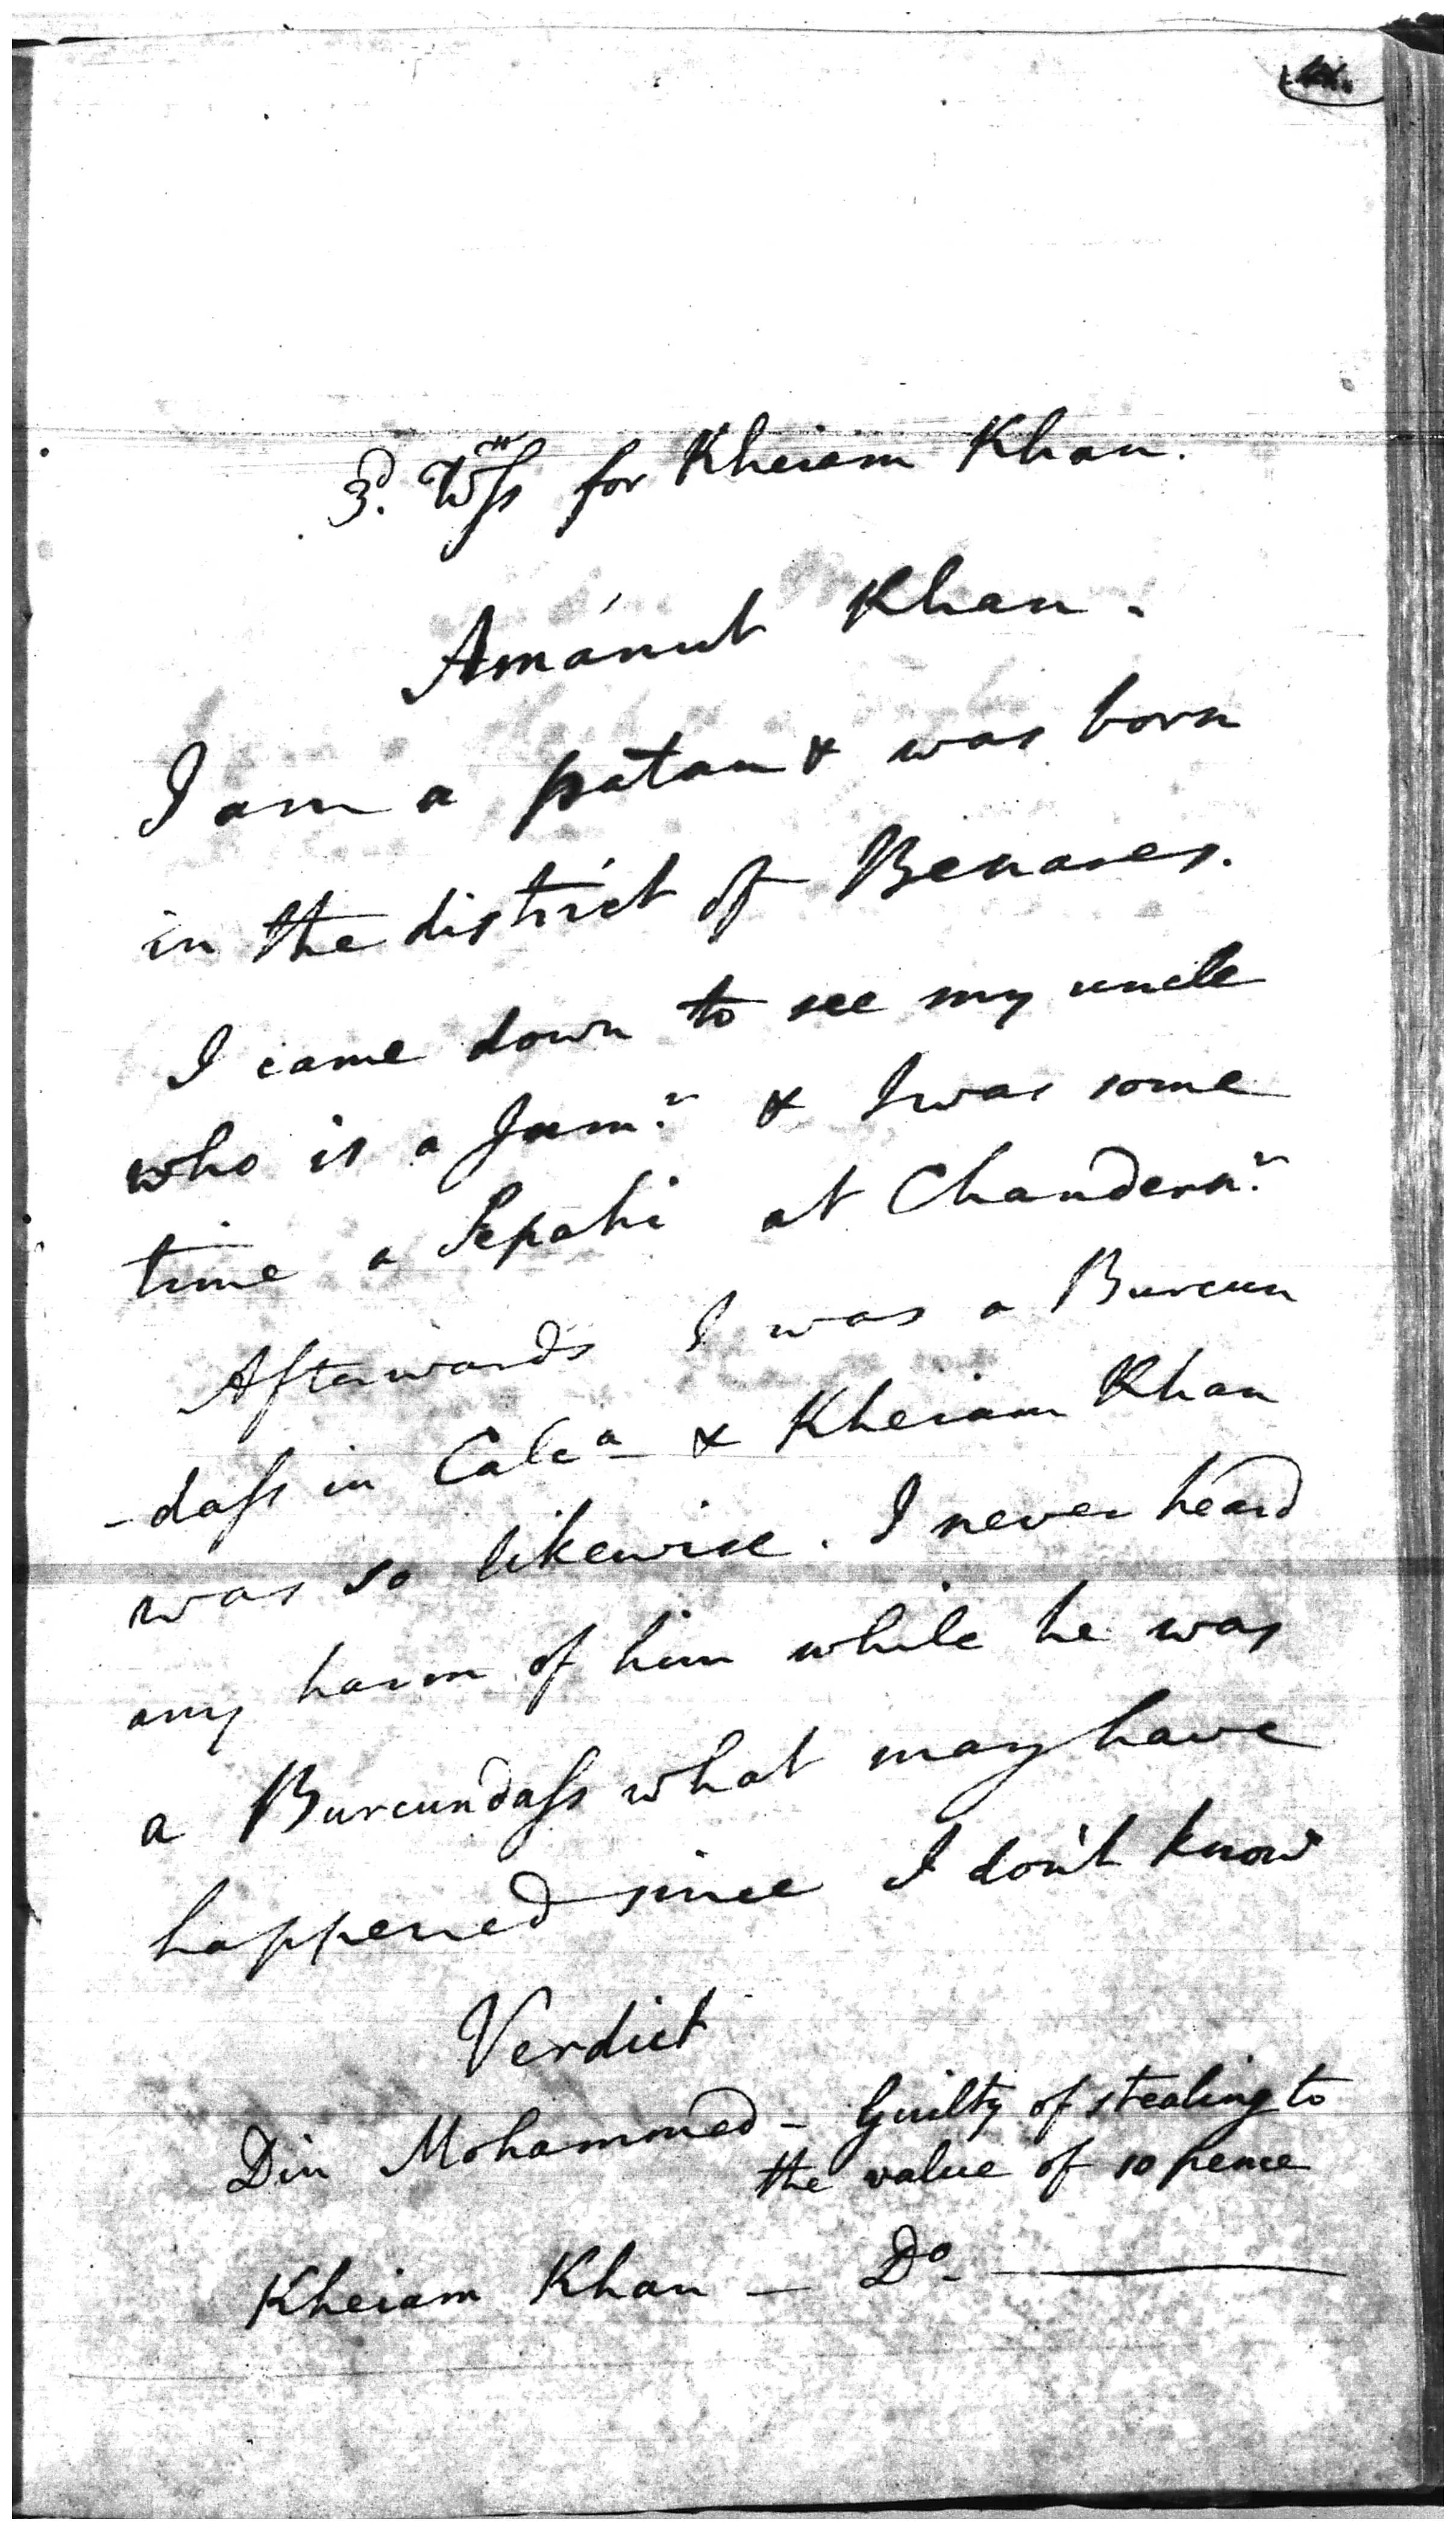 3.d Wss for Kheiam Khan.
Amánut Khan.
I am a patan & was born
in the district of Benares.
I came down to see my uncle
who is a Jam.r & I was some
time a Sepahi at Chandern.r
Afterwards I was a Burcun
-dass in Calca & Kheiam Khan
was so likewise. I never heard
any harm of him while he was
a Burcundass what may have
happened since I don't know
Verdict
Din Mohammed - Guilty of stealing to
the value of 10 pence
Kheiam Khan - Do